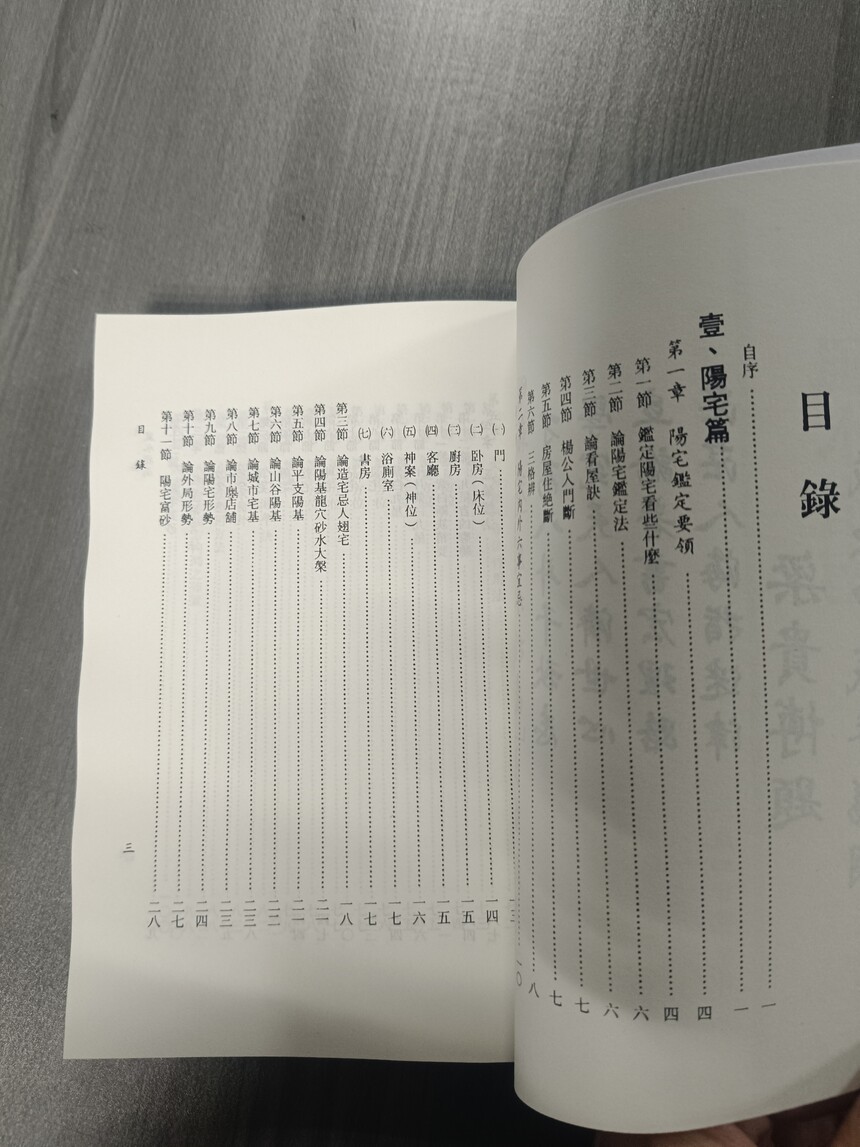 目錄
自序……一
壹、陽宅篇……一
第一章 陽宅鑑定要領……四
第一節 鑑定陽宅看些什麼……四
第二節 論陽宅鑑定法……六
第三節 論看屋訣……六
第四節 楊公入門斷……七
第五節 房屋住絶斷……七
第六節 三格辨……八
第二章 陽宅內外六事宜忌……一〇
㈠ 門……一三
㈡ 卧房（床位）……一四
㈢ 廚房……一五
㈣ 客廳……一五
㈤ 神案（神位）……一六
㈥ 浴廁室……一七
㈦ 書房……一七
第三節 論造宅忌人翅宅……一八
第四節 論陽基龍穴砂水大槩……二一
第五節 論平支陽基……二一
第六節 論山谷陽基……二二
第七節 論城市宅基……二三
第八節 論市廛店舖……二三
第九節 論陽宅形勢……二四
第十節 論外局形勢……二七
第十一節 陽宅富砂……二八
目錄
三